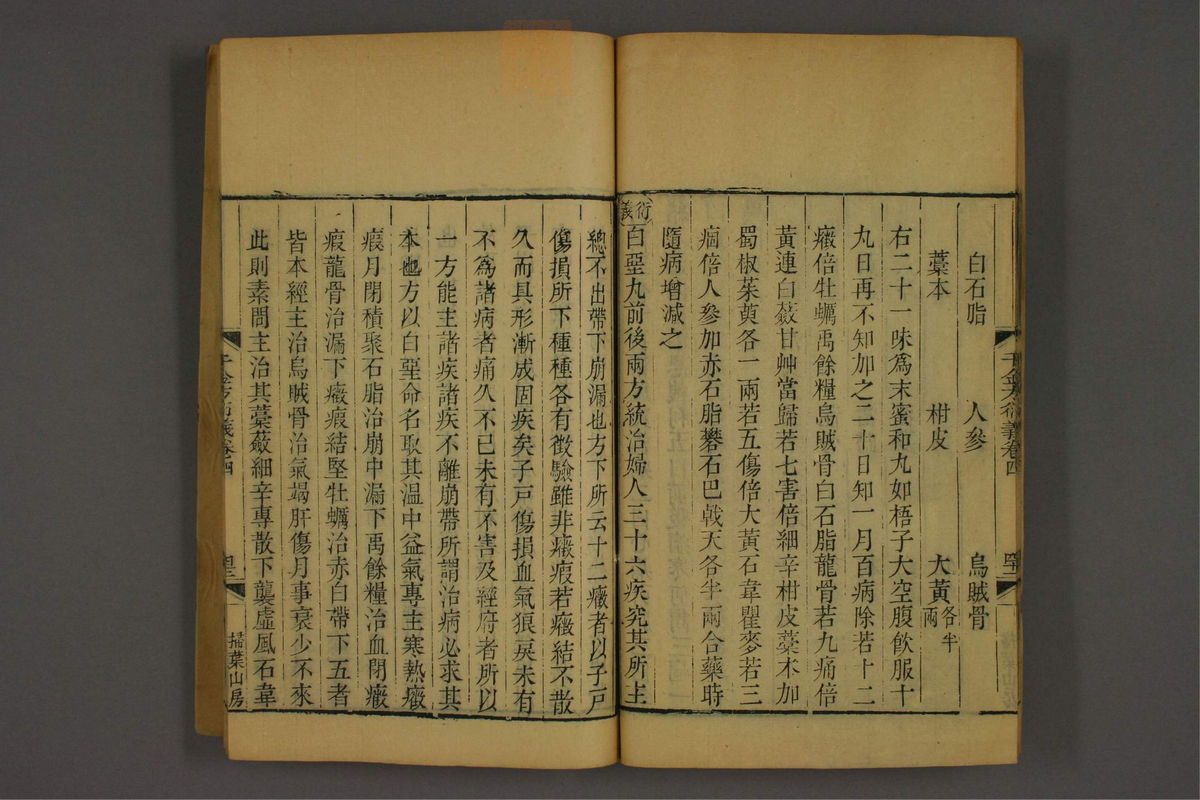 白石脂　人參　烏賊骨
藁本　柑皮　大黃各半兩
右二十一味爲末蜜和丸如梧子大空腹飲服十
丸日再不知加之二十日知一月百病除若十二
癥倍牡蠣禹餘糧烏賊骨白石脂龍骨若九痛倍
黃連白蘞甘艸當歸若七害倍細辛柑皮藁本加
蜀椒茱萸各一兩若五傷倍大黃石韋瞿麥若三
痼倍人參加赤石脂礬石巴戟天各半兩合藥時
隨病增減之
衍義白堊丸前後兩方統治婦人三十六疾究其所主
總不出帶下崩漏也方下所云十二癥者以子戸
傷損所下種種各有徵驗雖非癥瘕若癥結不散
久而具形漸成固疾矣子戸傷損血氣狼戾未有
不爲諸病者痛久不已未有不害及經府者所以
一方能主諸疾諸疾不離崩帶所謂治病必求其
本也方以白堊命名取其温中益氣專主寒熱癥
瘕月閉積聚石脂治崩中漏下禹餘糧治血閉癥
瘕龍骨治漏下癥瘕結堅牡蠣治赤白帶下五者
皆本經主治烏賊骨治氣竭肝傷月事衰少不來
此則素問主治其藁蘞細辛專散下襲虛風石韋
千金方衍義卷四
掃葉山房